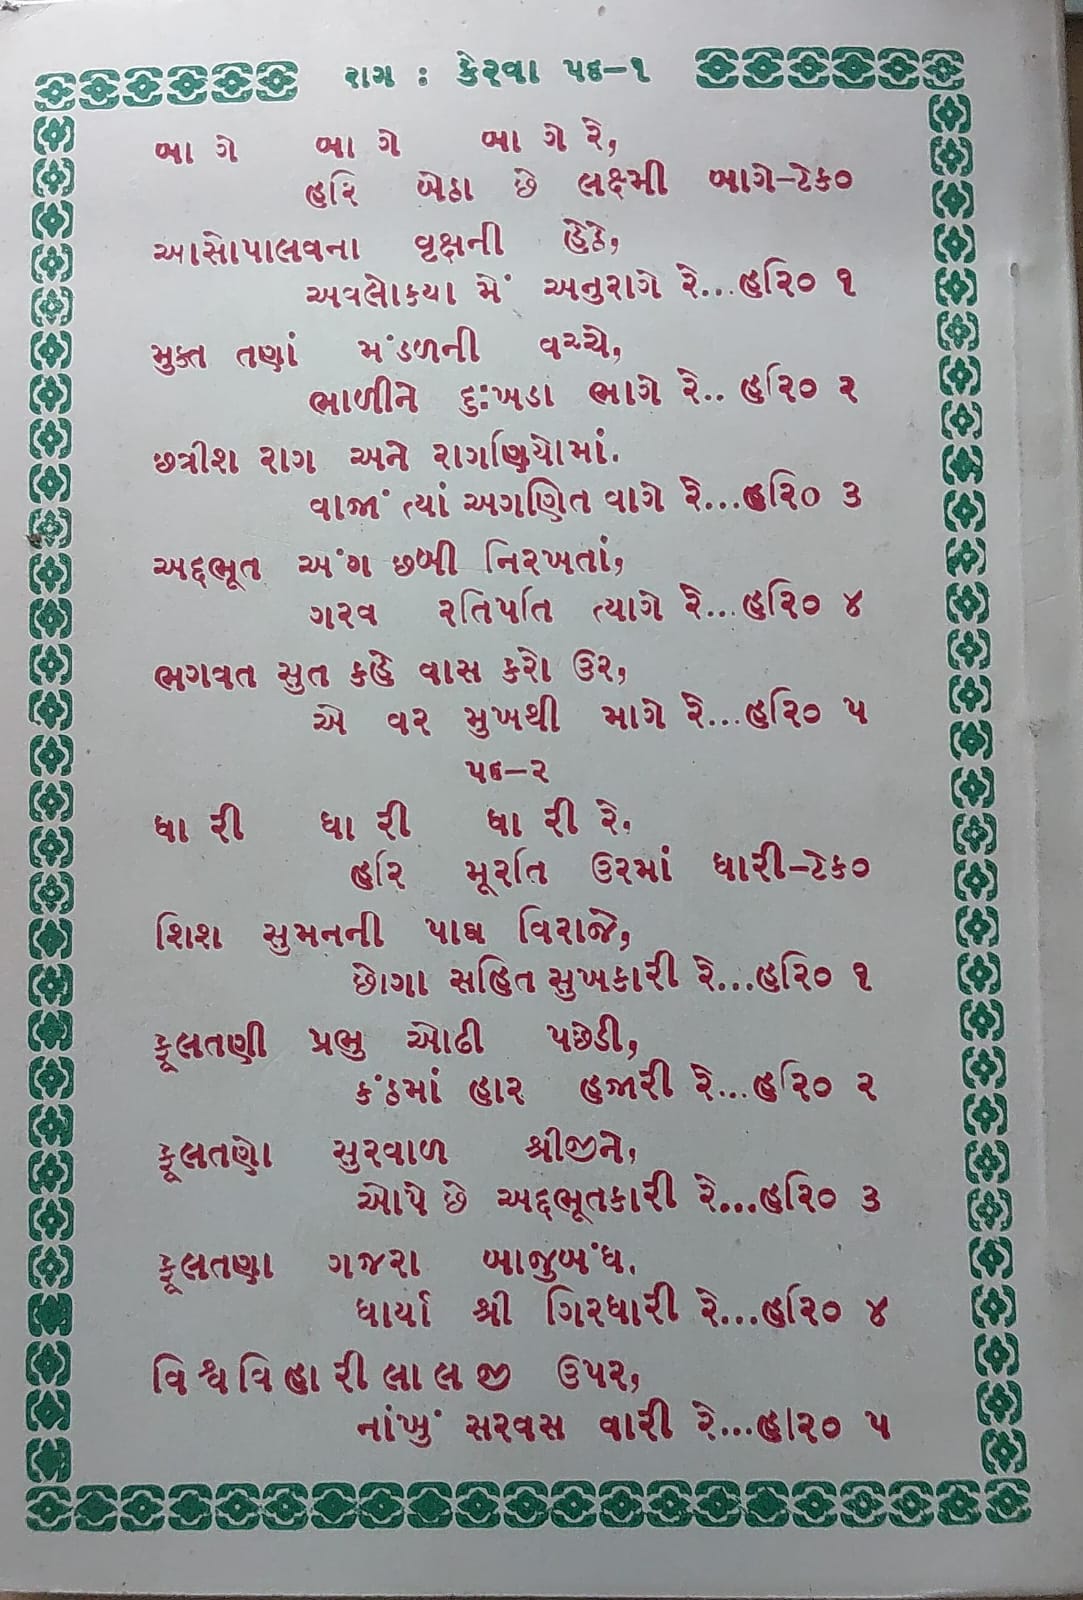 રાગ : કેરવા પદ-૧
બા ગે બા ગે બા ગે રે,
હરિ બેઠા છે લક્ષ્મી બાગે-ટેક૦
આસોપાલવના વૃક્ષની હેઠે,
અવલોકયા મેં અનુરાગે રે...હરિ૦ ૧
મુક્ત તણાં મંડળની વચ્ચે,
ભાળીને દુઃખડા ભાગે રે.. હરિ૦ ૨
છત્રીશ રાગ અને રાગણિયોમાં.
વાજાં ત્યાં અગણિત વાગે રે...હરિ૦ ૩
અદ્દભૂત અંગ છબી નિરખતાં,
ગરવ રતિપતિ ત્યાગે રે...હરિ૦ ૪
ભગવત સુત કહે વાસ કરો ઉર,
એ વર મુખથી માગે રે...હરિ૦ ૫
પદ-૨
ધા રી ધા રી ધા રી રે.
હરિ મૂરતિ ઉરમાં ધારી-ટેક૦
શિશ સુમનની પાઘ વિરાજે,
છોગા સહિત સુખકારી રે...હરિ૦ ૧
ફૂલતણી પ્રભુ ઓઢી પછેડી,
કંઠમાં હાર હજારી રે...હરિ૦ ૨
ફૂલતણો સુરવાળ શ્રીજીને,
ઓપે છે અદ્દભૂતકારી રે...હરિ૦ ૩
ફૂલતણા ગજરા બાજુબંધ.
ધાર્યા શ્રી ગિરધારી રે...હરિ૦ ૪
વિ શ્વ વિ હા રી લા લ જી ઉપર,
નાંખું સરવસ વારી રે...હરિ૦ ૫